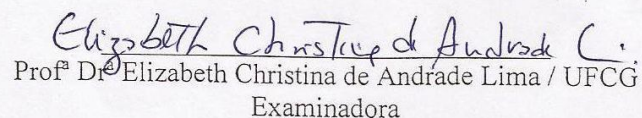 Elizabeth Christina de Andrade C.
Profª Drª Elizabeth Christina de Andrade Lima / UFCG
Examinadora